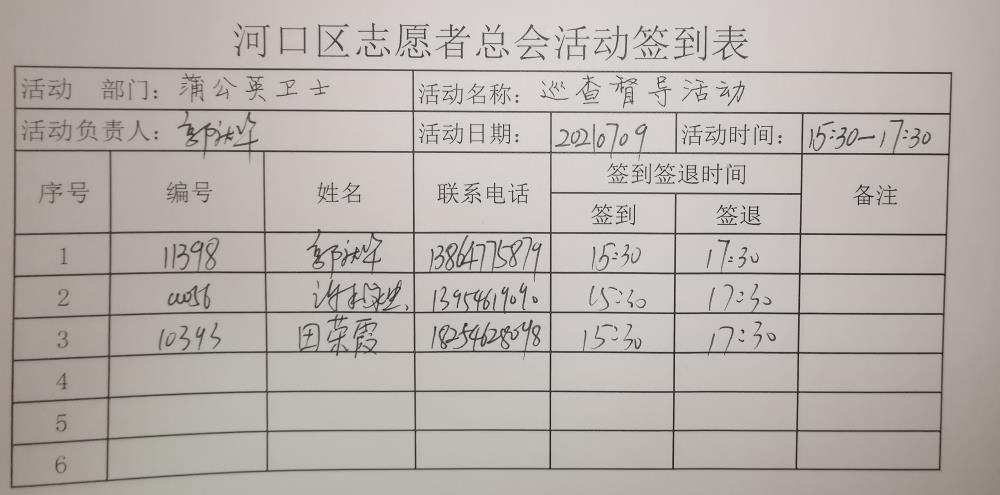 河口区志愿者总会活动签到表
活动 部门：蒲公英卫士 活动名称：巡查督导活动
活动负责人：郭 活动日期：20210709 活动时间：15:30—17:30
序号 编号 姓名 联系电话 签到签退时间 备注
签到 签退
1 11398 郭 13864775879 15:30 17:30
2 许 13954619090 15:30 17:30
3 10393 田荣霞 18254628098 15:30 17:30
4
5
6